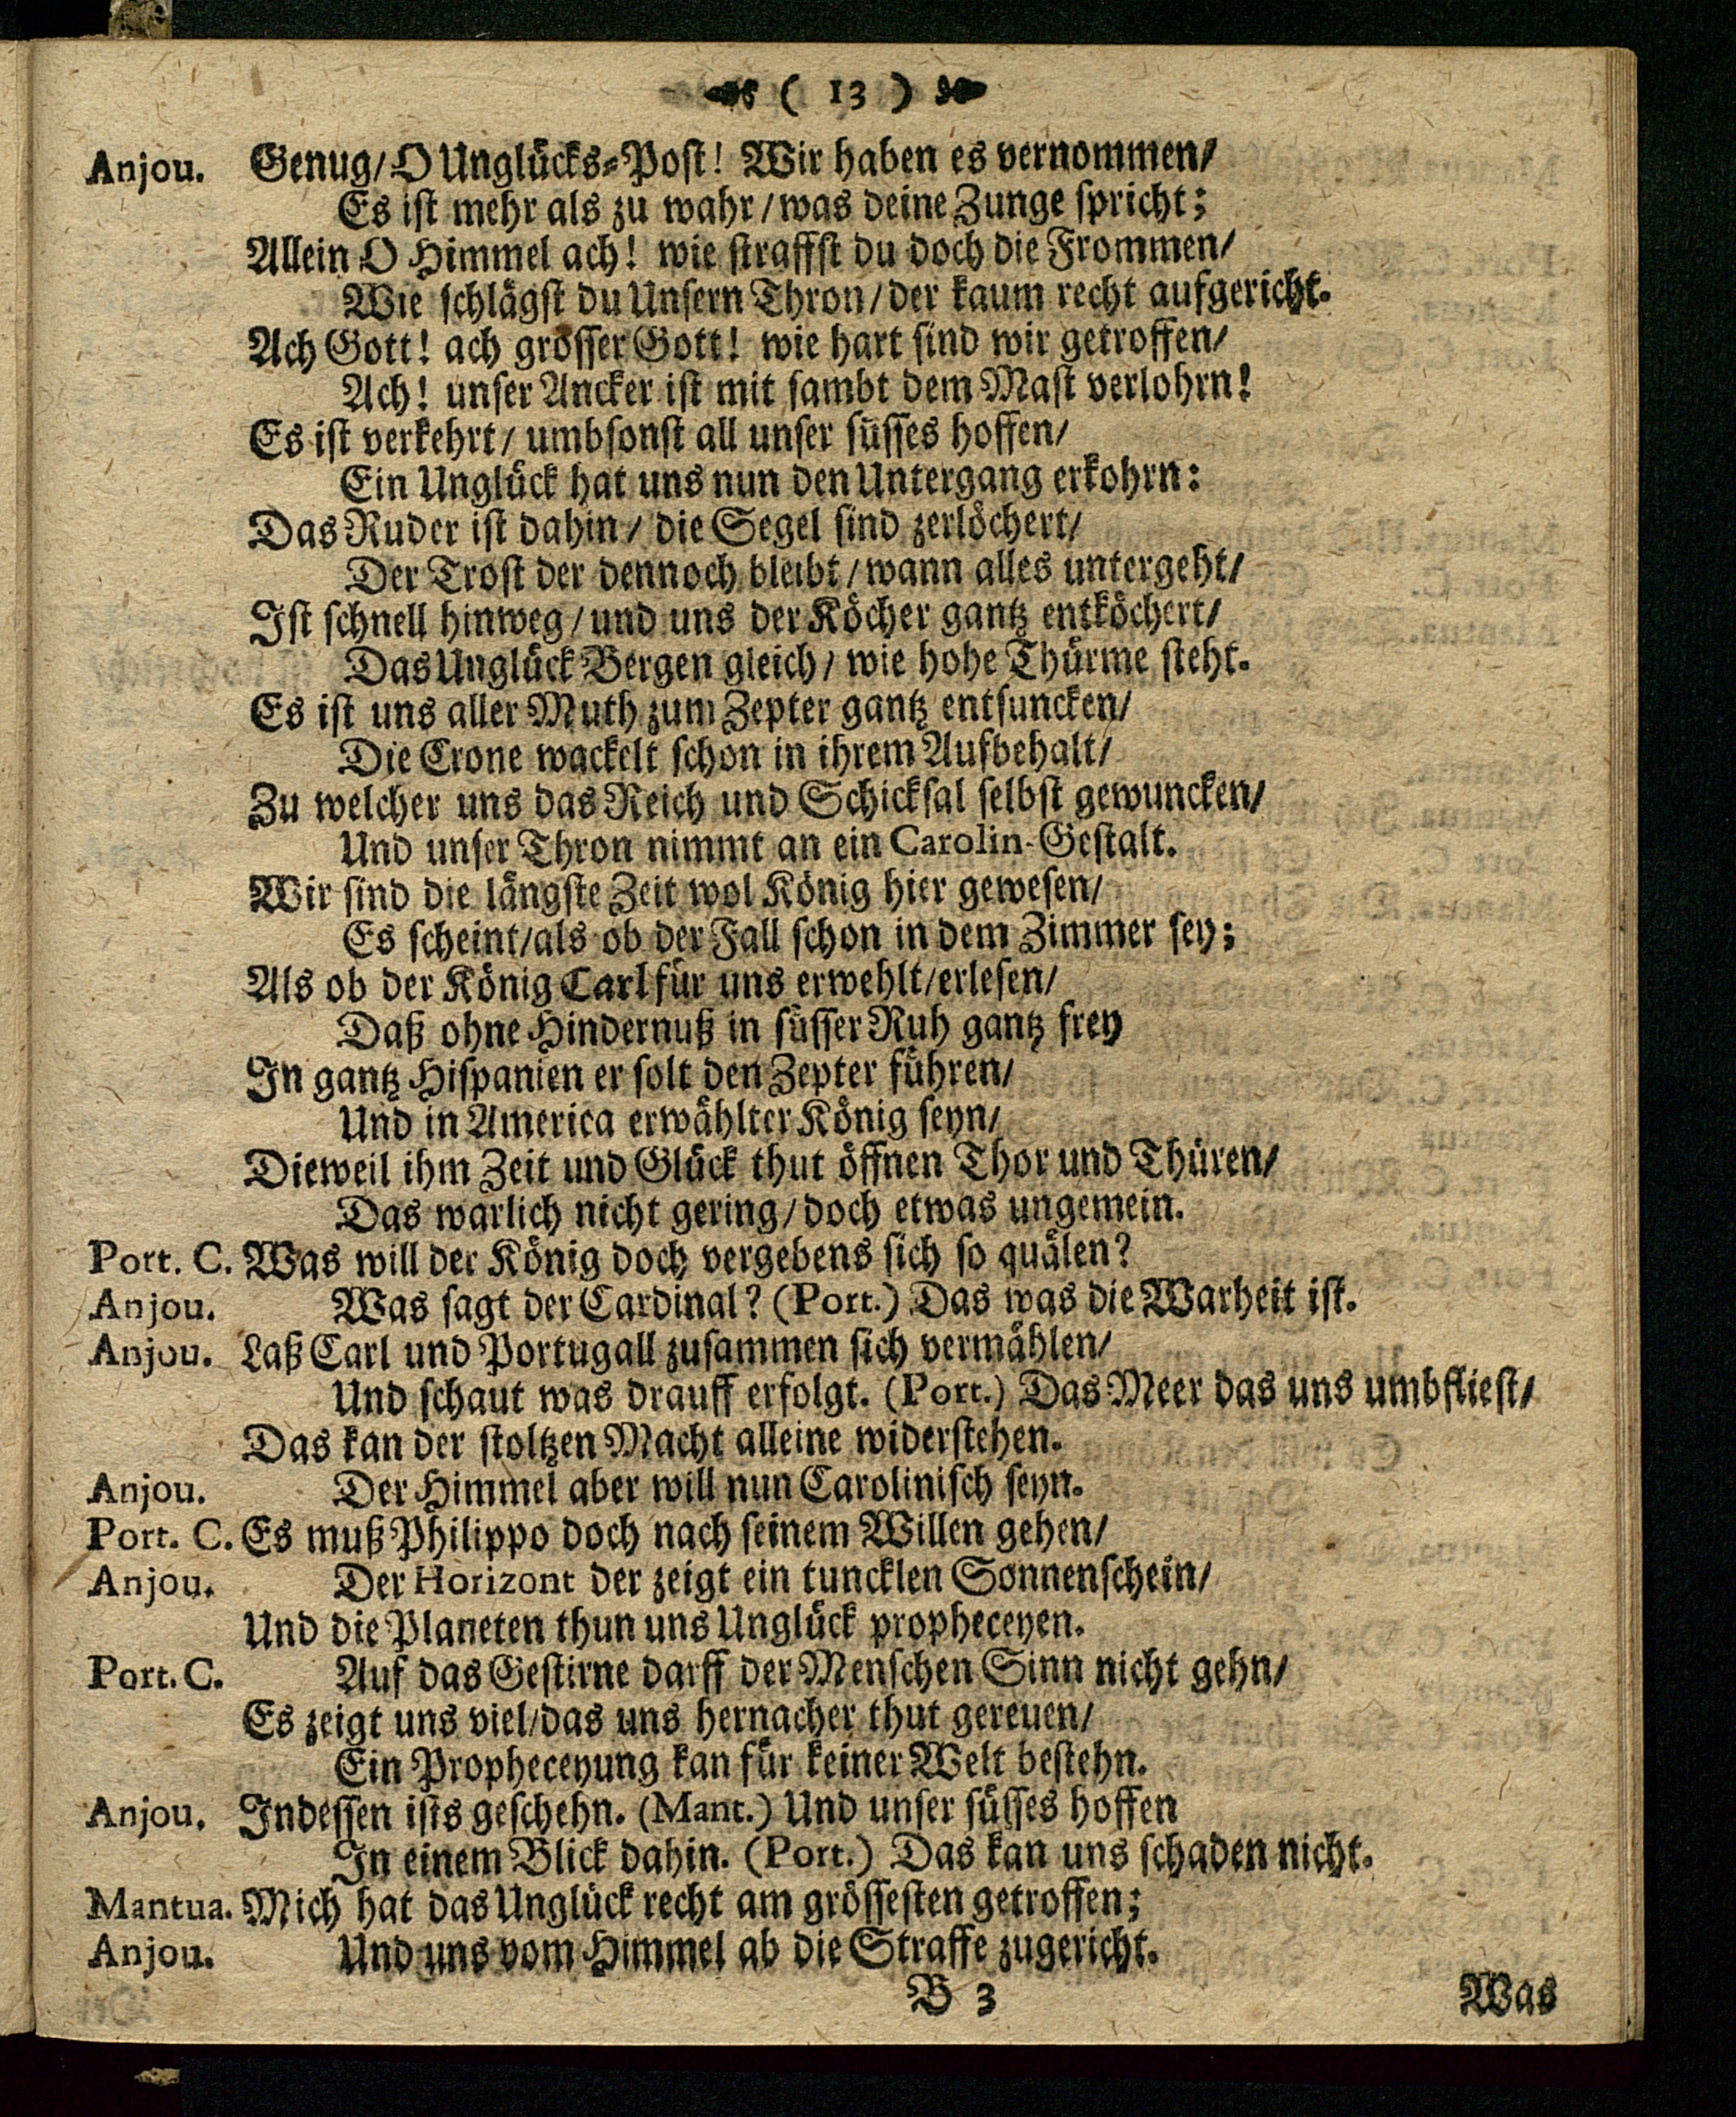 ( 13 )
Anjou. Genug/ O Unglücks-Post! Wir haben es vernommen/
Es ist mehr als zu wahr/ was deine Zunge spricht;
Allein O Himmel ach! wie straffst du doch die Frommen/
Wie schlägst du Unsern Thron/ der kaum recht aufgericht.
Ach Gott! ach grosser Gott! wie hart sind wir getroffen/
Ach! unser Ancker ist mit sambt dem Mast verlohrn!
Es ist verkehrt/ umbsonst all unser süsses hoffen/
Ein Unglück hat uns nun den Untergang erkohrn:
Das Ruder ist dahin/ die Segel sind zerlöchert/
Der Trost der dennoch bleibt/ wann alles untergeht/
Ist schnell hinweg/ und uns der Köcher gantz entköchert/
Das Unglück Bergen gleich/ wie hohe Thürme steht.
Es ist uns aller Muth zum Zepter gantz entsuncken/
Die Crone wackelt schon in ihrem Aufbehalt/
Zu welcher uns das Reich und Schicksal selbst gewuncken/
Und unser Thron nimmt an ein Carolin-Gestalt.
Wir sind die längste Zeit wol König hier gewesen/
Es scheint/ als ob der Fall schon in dem Zimmer sey;
Als ob der König Carl für uns erwehlt/ erlesen/
Daß ohne Hindernuß in süsser Ruh gantz frey
In gantz Hispanien er solt den Zepter führen/
Und in America erwählter König seyn/
Dieweil ihm Zeit und Glück thut öffnen Thor und Thüren/
Das warlich nicht gering/ doch etwas ungemein.
Port. C. Was will der König doch vergebens sich so quälen?
Anjou. Was sagt der Cardinal? (Port.) Das was die Warheit ist.
Anjou. Laß Carl und Portugall zusammen sich vermählen/
Und schaut was drauff erfolgt. (Port.) Das Meer das uns umbfliest/
Das kan der stoltzen Macht alleine widerstehen.
Anjou. Der Himmel aber will nun Carolinisch seyn.
Port. C. Es muß Philippo doch nach seinem Willen gehen/
Anjou. Der Horizont der zeigt ein tuncklen Sonnenschein/
Und die Planeten thun uns Unglück propheceyen.
Port. C. Auf das Gestirne darff der Menschen Sinn nicht gehn/
Es zeigt uns viel/ das uns hernacher thut gereuen/
Ein Propheceyung kan für keiner Welt bestehn.
Anjou. Indessen ists geschehn. (Mant.) Und unser süsses hoffen
In einem Blick dahin. (Port.) Das kan uns schaden nicht.
Mantua. Mich hat das Unglück recht am grössesten getroffen;
Anjou. Und uns vom Himmel ab die Straffe zugericht.
B 3 Was